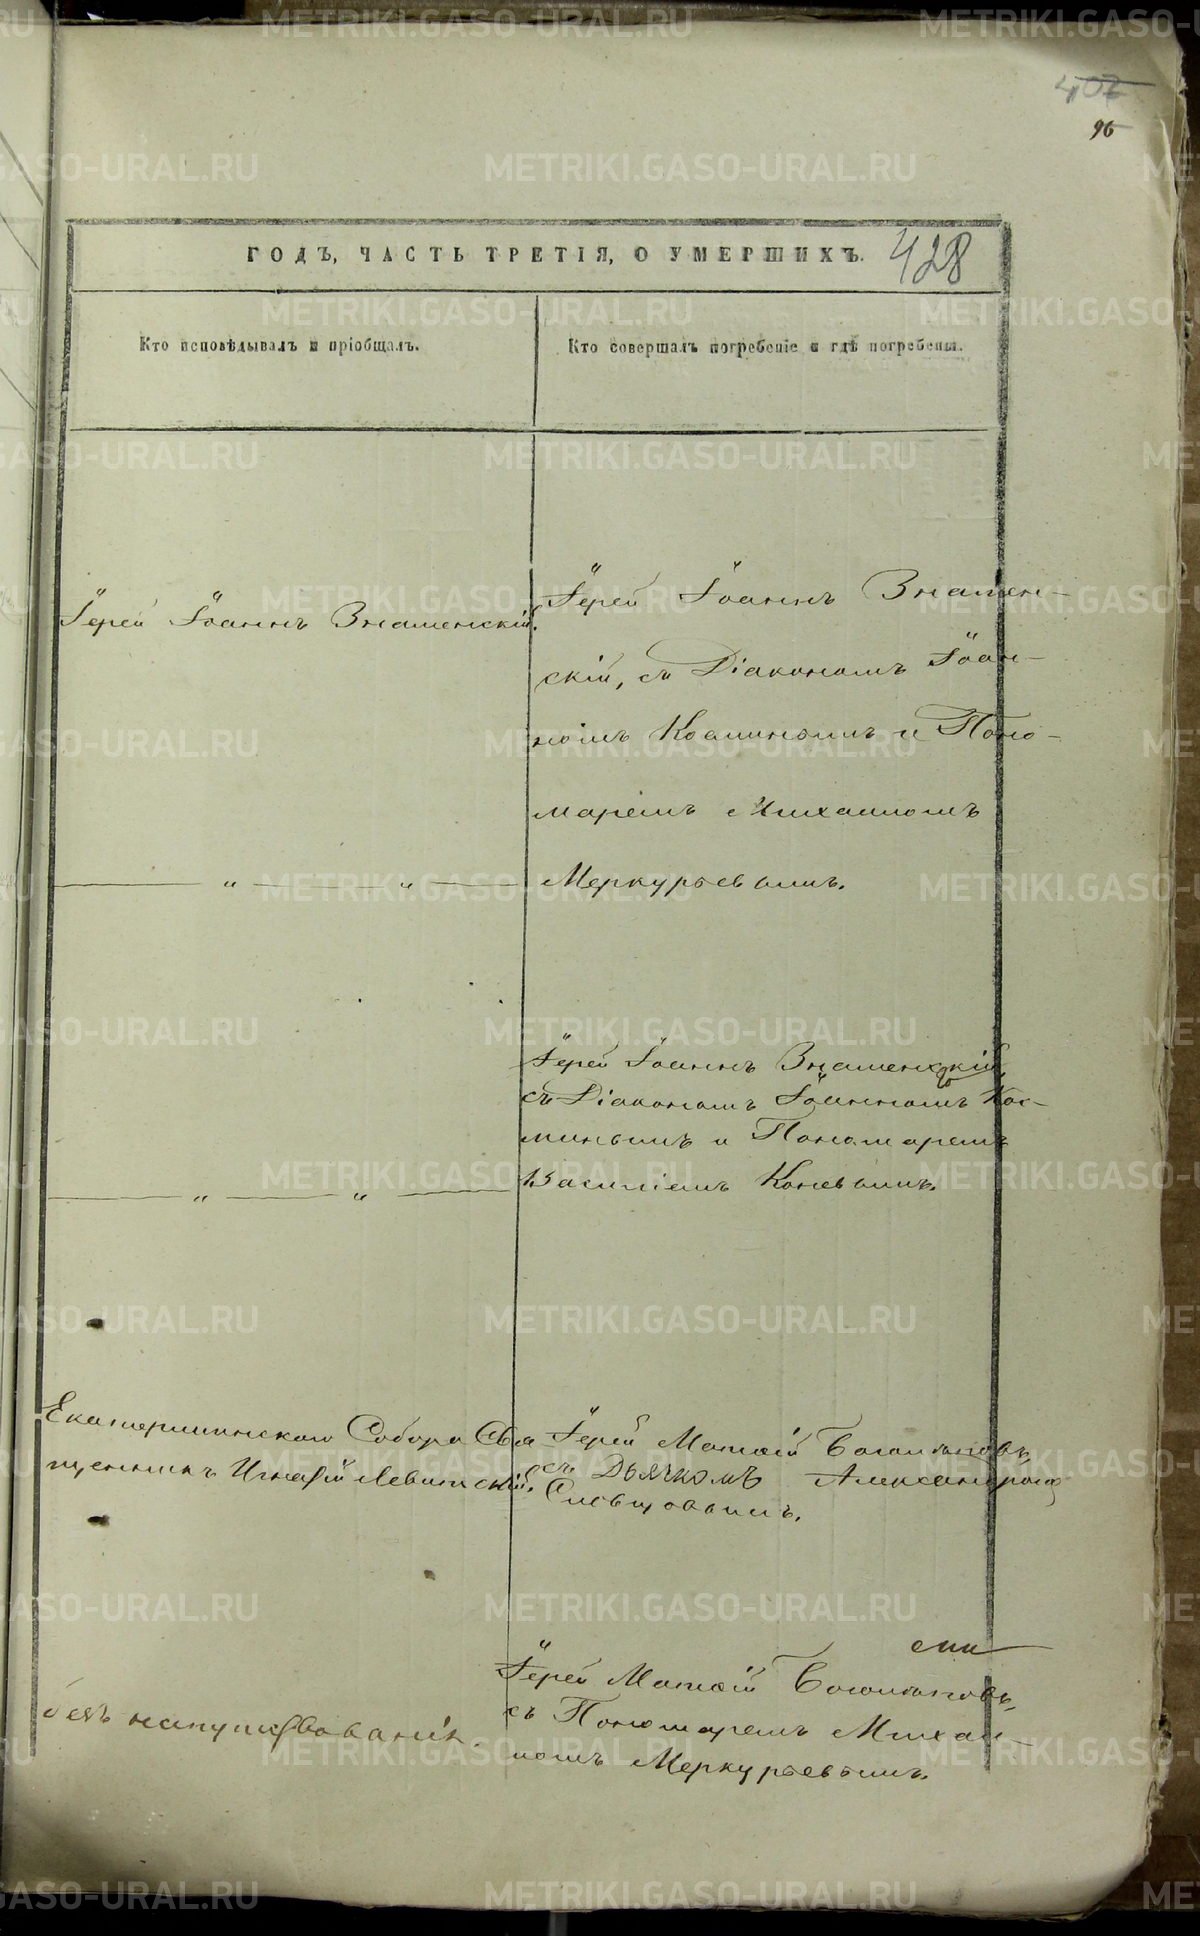 407
96
ГОДЪ, ЧАСТЬ ТРЕТІЯ, О УМЕРШИХЪ.
428
Кто исповѣдывалъ и пріобщалъ.
Кто совершалъ погребеніе и гдѣ погребены.
Іерей Іоаннъ Знаменскій.
Іерей Іоаннъ Знамен-
скій, съ Діакономъ Іоан-
номъ Косминымъ и Поно-
маремъ Михаиломъ
Меркурьевымъ.
Іерей Іоаннъ Знаменскій,
съ Діакономъ Іоанномъ Кос-
минымъ и Пономаремъ
Василіемъ Коневымъ.
Екатерининскаго Собора Свя
щенникъ Игнатій Левитскій.
Іерей Матѳій
съ Дьячкомъ Александромъ
Слѣпцовымъ.
безъ напутствованія.
Іерей Матѳій
съ Пономаремъ Михаи-
ломъ Меркурьевымъ.
METRIKI.GASO-URAL.RU